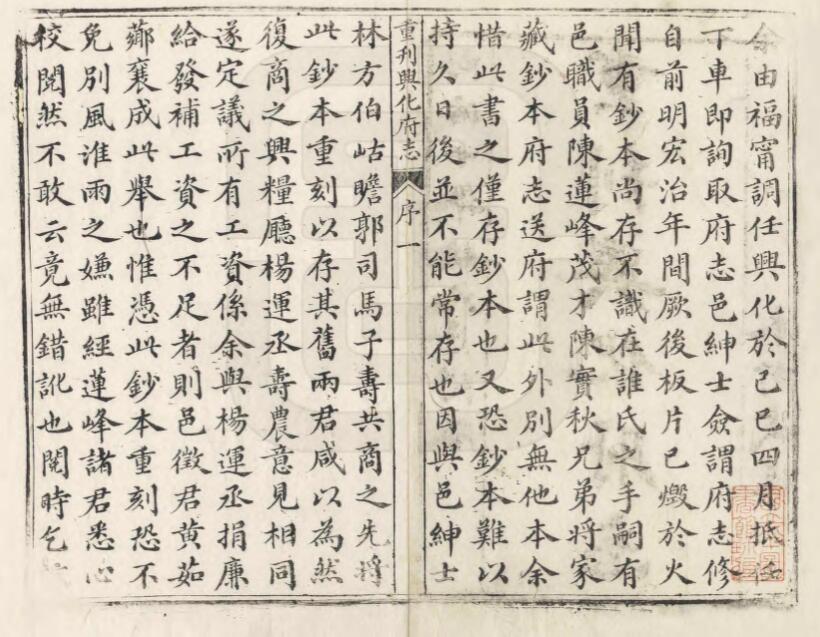 余由福甯調任興化於己巳四月抵任
下車即詢取府志邑紳士僉謂府志修
自前明宏治年間厥後板片已燬於火
聞有鈔本尚存不識在誰氏之手嗣有
邑職員陳蓮峰茂才陳實秋兄弟將家
藏鈔本府志送府謂此外別無他本余
惜此書之僅存鈔本也又恐鈔本難以
持久日後並不能常存也因與邑紳士
重刊興化府志 序 一
林方伯岵瞻郭司馬子壽共商之先將
此鈔本重刻以存其舊兩君咸以為然
復商之興糧廳楊運丞壽農意見相同
遂定議所有工資係余與楊運丞捐廉
給發補工資之不足者則邑徵君黃茹
薌襄成此舉也惟憑此鈔本重刻恐不
免別風淮雨之嫌雖經蓮峰諸君悉心
校閱然不敢云竟無錯訛也閱時乞